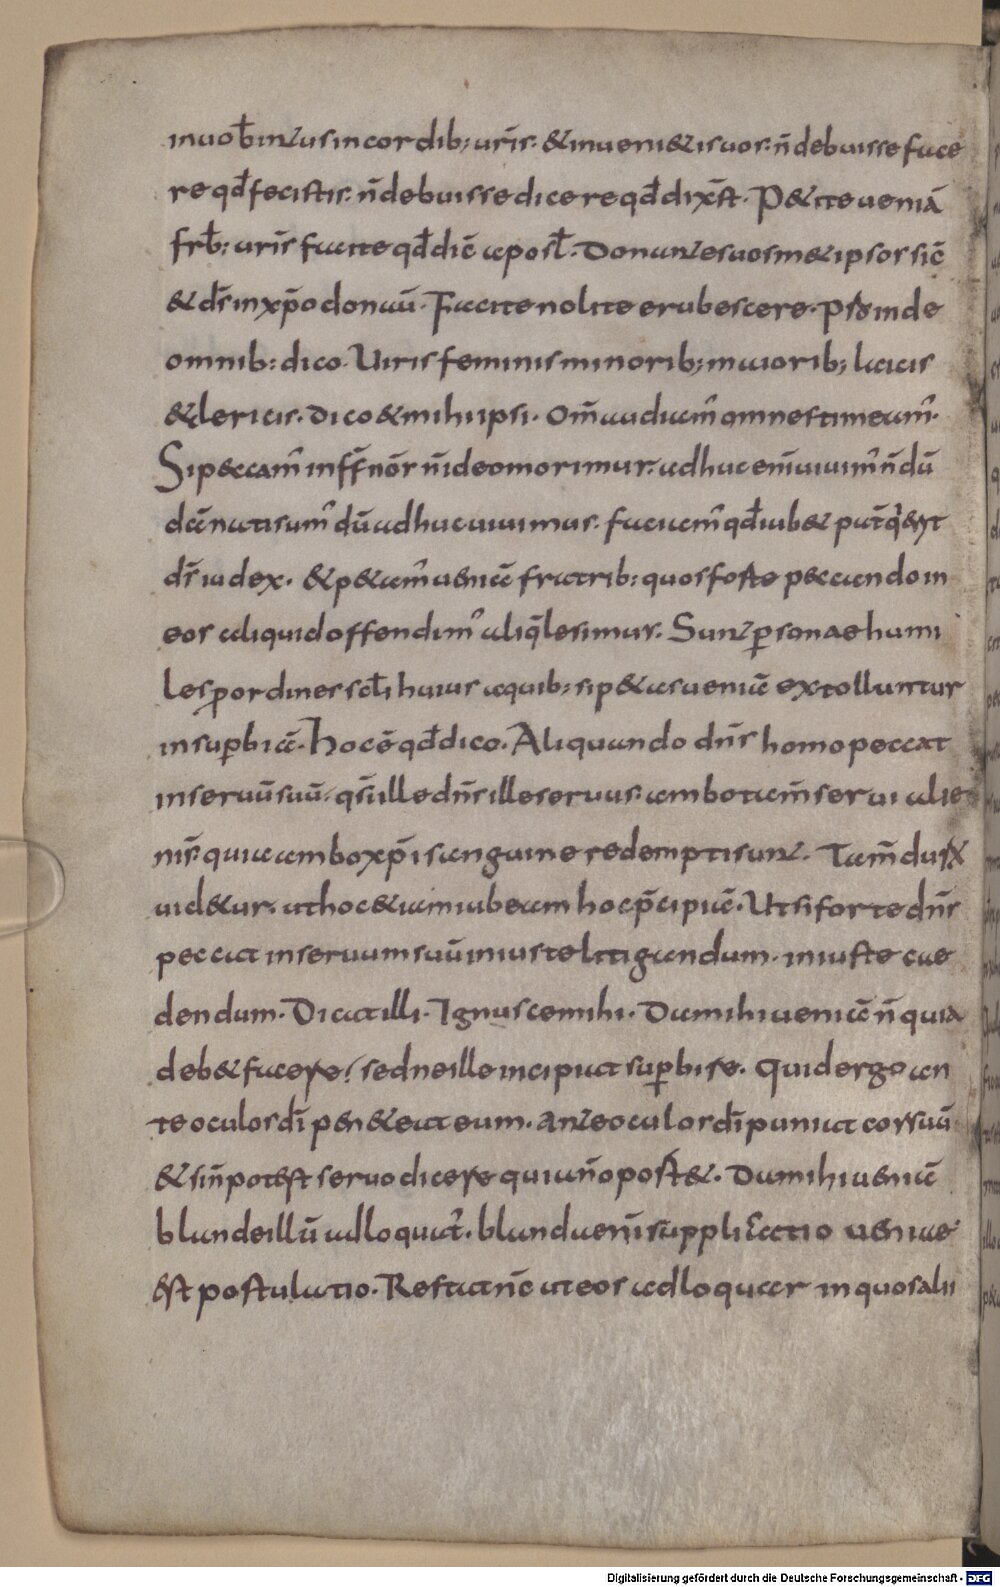 inuob̄ intus in cordib; ur̄is. & inueni&is uos. n̄ debuisse face
re qđ fecistis. n̄ debuisse dicere qđ dixist̄. P&ite ueniā
frb̄: ur̄is facite qđ diē aposł. Donantes uosm&ipsos sic̄
& dr̄ in xp̄o donauū. Facite nolite erubescere. P̱inde
omnib: dico. Uiris feminis minorib; maiorib; laicis
&lericis. dico & mihi ipsi. Om̄ audiam̉ omnes timeam̉.
Si peccam̉ in ff̄ nōr n̄ ideo morimur. adhuc en̄ uiuim̉ n̄dū
dānati sum̉ dū adhuc uiuimus. faciem̉ qđ iub& pat̄ q̉ erit
dr̄ iudex. & p&am̉ ueniā fratrib: quos forte peccando in
eos aliquid offendim̉ aliq̄ lesimus. Sunt ꝑsonae humi
les ꝑ ordines sc̄li huius a quib; si p&as ueniā extolluntur
in suꝑbiā. Hoc ē qđ dico. Aliquando dn̄s homo peccat
in seruū suū. q̄si ille dn̄s ille seruus. ambo tam̄ serui alie
nis. quia ambo xp̄i sanguine redempti sunt. Tam̄ durū
uid&ur. ut hoc &iam iubeam hoc p̄cipiā. Ut si forte dn̄s
peccat in seruum suū iniuste litigandum. iniuste cae
dendum. Dicat illi. Ignusce mihi. Da mihi ueniā n̄ quia
deb& facere. sed ne ille incipiat suꝑbire. Quid ergo an
te oculos dī pen&eat eum. ante oculos dī puniat cor suū
& si n̄ potest seruo dicere quia n̄ oport&. Da mihi ueniā
blande illū adloquat̉. blanda en̄ supplicatio ueniae
est postulatio. Restat n̄c ut eos adloquar in quos alii